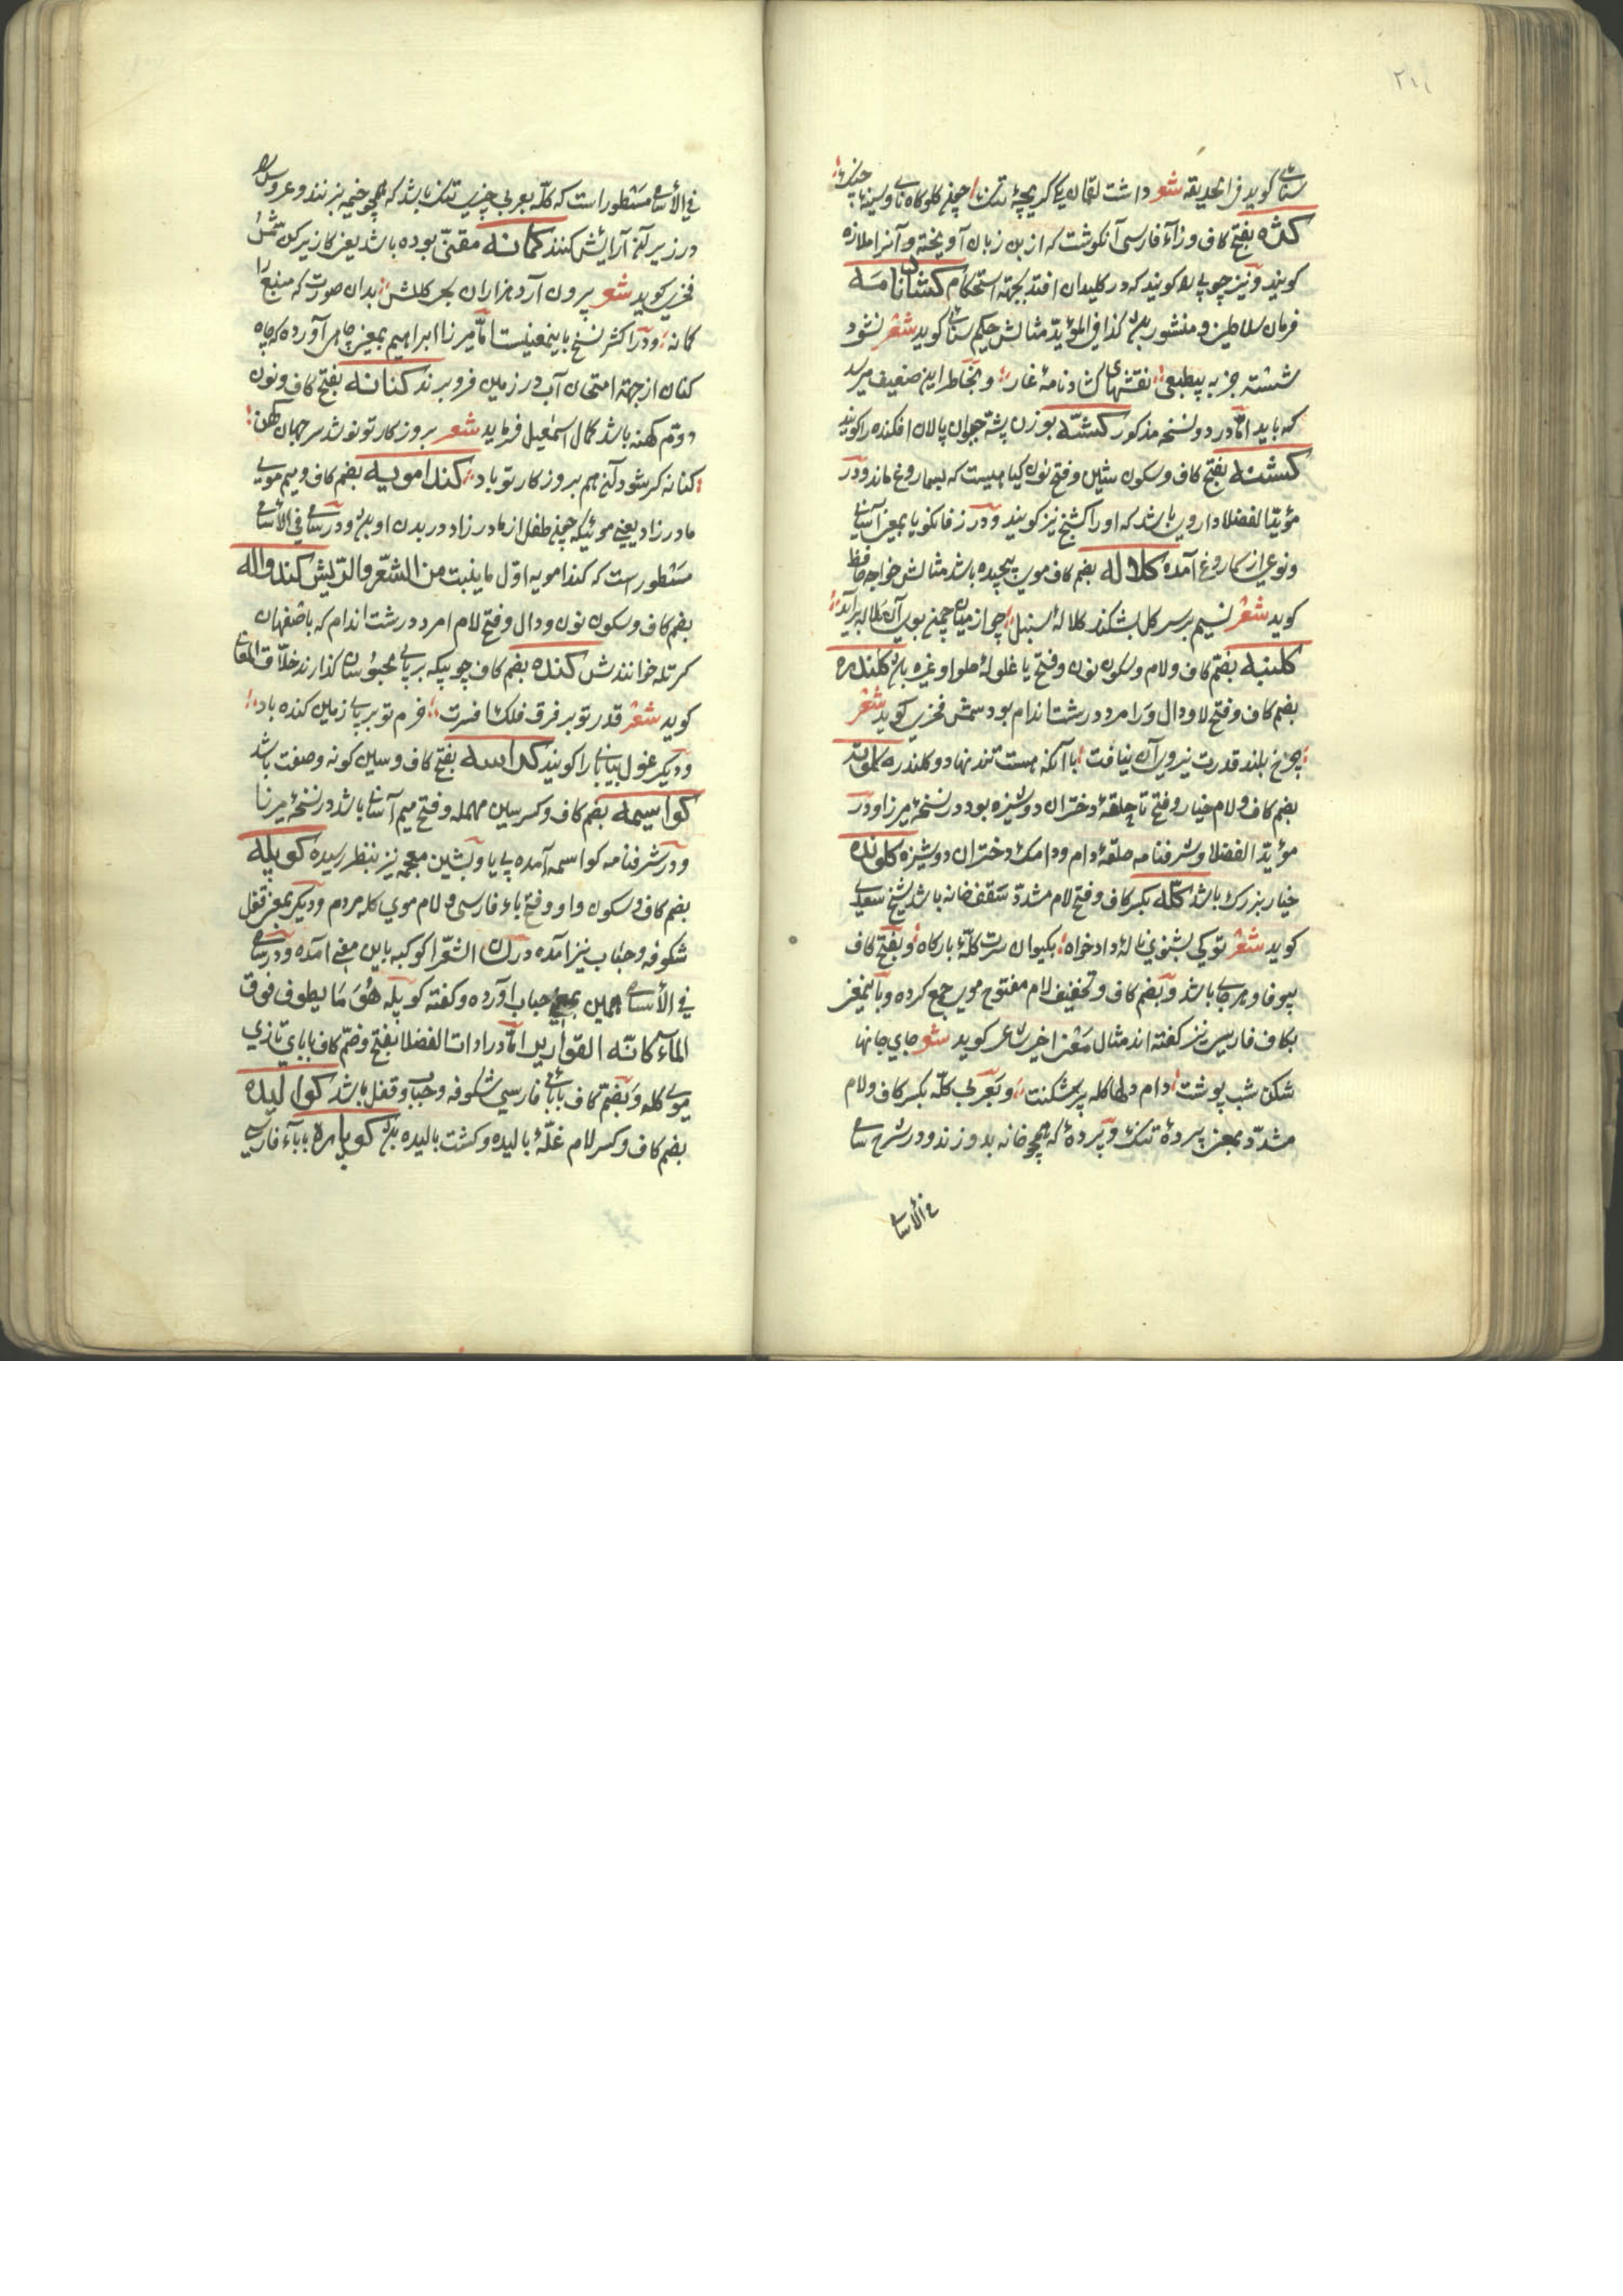 ۲۱۱
سنائی کوید فی الحدیقه شعر داشت لقمان یکی کریچهٔ تنک چون کلوکاه نای وسینهٔ چنک
کژه بفتح کاف وزآء فارسی آنکوشت که از بن زبان آویخته و آنرا ملازه
کویند ونیز چوبی را کویند که در کلیدان افتد بجهته استحکام کشانامه
فرمان سلاطین ومنشور بود کذا فی المؤید مثالش حکیم سنائی کوید شعر نشود
شسته جز به بیطمعی نقشهای کشادنامهٔ عار وبخاطر این ضعیف میرسد
که باید اما در دو نسخه مذکور کشته بوزن پشته حیوان پالان افکنده را کویند
کشنه بفتح کاف وسکون شین وفتح نون کیاهیست که بسماروغ ماند ودر
مؤید الفضلا دارویی باشد که اورا کشنج نیز کویند ودر زفانکویا بمعنی آسانی
ونوعی از کماروغ آمده کلاله بضم کاف موی پیچیده باشد مثالش خواجه حافظ
کوید شعر نسیم بر سر کل بشکند کلالهٔ سنبل چو از میان چمن بوی آن کلاله برآید
کلینه بضم کاف ولام وسکون نون وفتح یا غلولهٔ حلوا وغیره بود کلندره
بضم کاف وفتح لا ودال ورا مرد درشت اندام بود شمس فخری کوید شعر
چرخ بلند قدرت نیروی آن نیافت با آنکه هست تند نهاد و کلندره کلوته
بضم کاف ولام خیار وفتح تا حلقهٔ دختران دوشیزه بود در نسخهٔ میرزا ودر
مؤید الفضلا وشرفنامه حلقهٔ دام ودامک دختران دوشیزه کلونده
خیار بزرک باشد کله بکسر کاف وفتح لام مشدد سقف خانه باشد شیخ سعدی
کوید شعر تو کی بشنوی نالهٔ دادخواه بکیوان برت کلهٔ بارکاه وبفتح کاف
بیوفا وهرجایی باشد وبضم کاف وتخفیف لام مفتوح موی جمع کرده وباینمعنی
بکاف فارسی نیز کفته اند مثال معنی اخیر شاعر کوید شعر جای جانها
شکن شب پوشت دام دلها کله پر شکنت وبعربی کله بکسر کاف ولام
مشدد بمعنی پردهٔ تنک وپردهٔ که همچو خانه بدوزند ودر شرح سامی
فی الأسامی
فی الأسامی مسطور است که کله بعربی چیزی تنک باشد که همچو خیمه بزنند وعروس را
در زیر آن آرایش کنند کمانه مقنی بوده باشد یعنی کاریز کن شمس
فخری کوید شعر برون آرد هزاران بحر کلش بدان صورت که منبع را
کمانه ودر اکثر نسخ باینمعنیست اما میرزا ابراهیم بمعنی چاهی آورده که چاه
کنان از جهته امتحان آب در زمین فرو برند کنانه بفتح کاف ونون
دوم کهنه باشد کمال اسمعیل فرماید شعر بروزکار تو نو شد سر جهان کهن
کنانه کر شود آن هم بروزکار تو باد کندامویه بضم کاف ومیم مویی
مادرزاد یعنی موئیکه چون طفل از مادر زاد در بدن او بود ودر سامی فی الأسامی
مسطور است که کندامویه اول ما ینبت من الشعر والریش کندواله
بضم کاف وسکون نون ودال وفتح لام امرد درشت اندام که باصفهان
کرتله خوانندش کنده بضم کاف چوبیکه بر پای محبوسان کذارند خلاق المعانی
کوید شعر قدر تو بر فرق فلک تا فسرت خزم تو بر پای زمین کنده باد
ودیکر غول بیابانی را کویند کراسه بفتح کاف وسین کونه وصفت باشد
کواسیمه بضم کاف وکسر سین مهمله وفتح میم آسانی باشد در نسخهٔ میرزا
ودر شرفنامه کواسمه آمده بی یا وبشین معجمه نیز بنظر رسیده کوپله
بضم کاف وسکون واو وفتح باء فارسی ولام موی کله مردم ودیکر بمعنی قفل
شکوفه وحباب نیز آمده در لسان الشعرا کوکبه باین معنی آمده ودر سامی
فی الأسامی همین بمعنی حباب آورده وکفته کوپله هو ما یطوف فوق
الماء کانه القواریر اما در ادات الفضلا بفتح وضم کاف با بای تازی
موی کله وبضم کاف بابای فارسی شکوفه وحباب وقفل باشد کوالیده
بضم کاف وکسر لام غلهٔ بالیده وکشت بالیده بود کوپاره با بآء فارسی